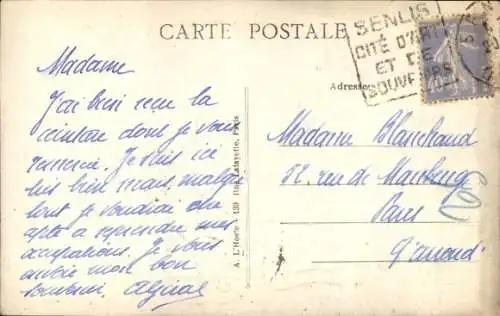 CARTE POSTALE
SENLIS
CITÉ D'ART
ET DE
SOUVENIRS
Adresse
Madame
J'ai bien reçu la
ceinture dont je vous
remercie. Je suis ici
très bien mais, malgré
tout je voudrai être
apte à reprendre mes
occupations. Je vous
envoie mon bon
souvenir.
Madame Blanchard
52, rue de
Paris
A. L'Hoste : 139 Rue Lafayette, Paris